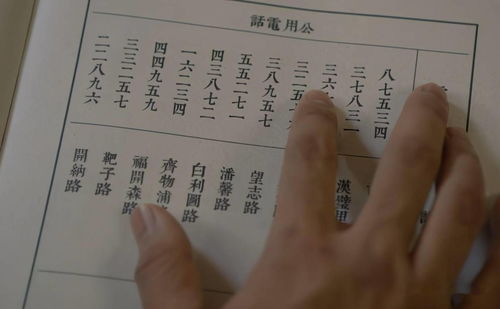 公用電話
八七五三四
三七八三一
三六
三八九五七
五五二七一
四三八七二
一六二三四
四四九五九
三三二五七
二二八九六
漢璧
望志路
潘馨路
白利圖路
齊物浦路
福開森路
靶子路
開納路